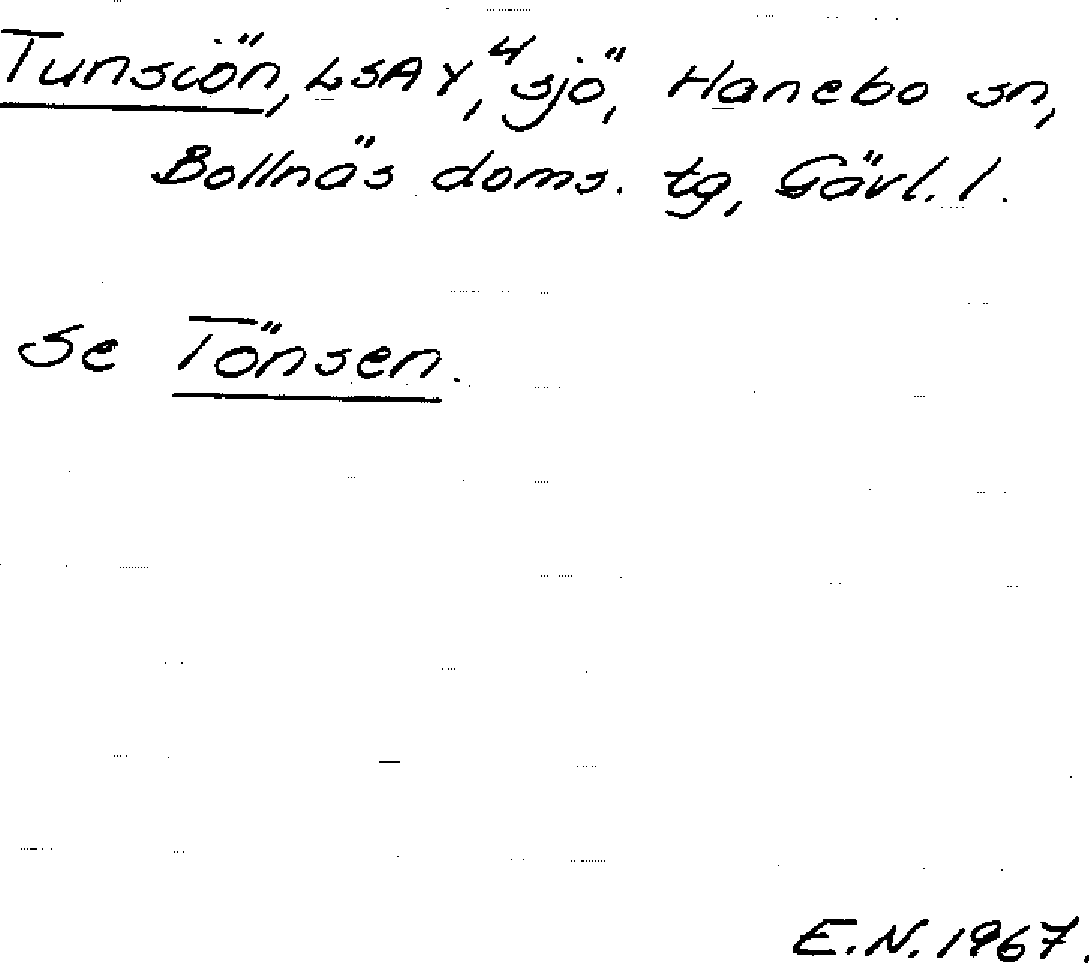 Tunsiön, LSA Y⁴, sjö, Hanebo sn,
Bollnäs doms. tg, Gävl. l.
Se Tönsen.
E.N. 1967.